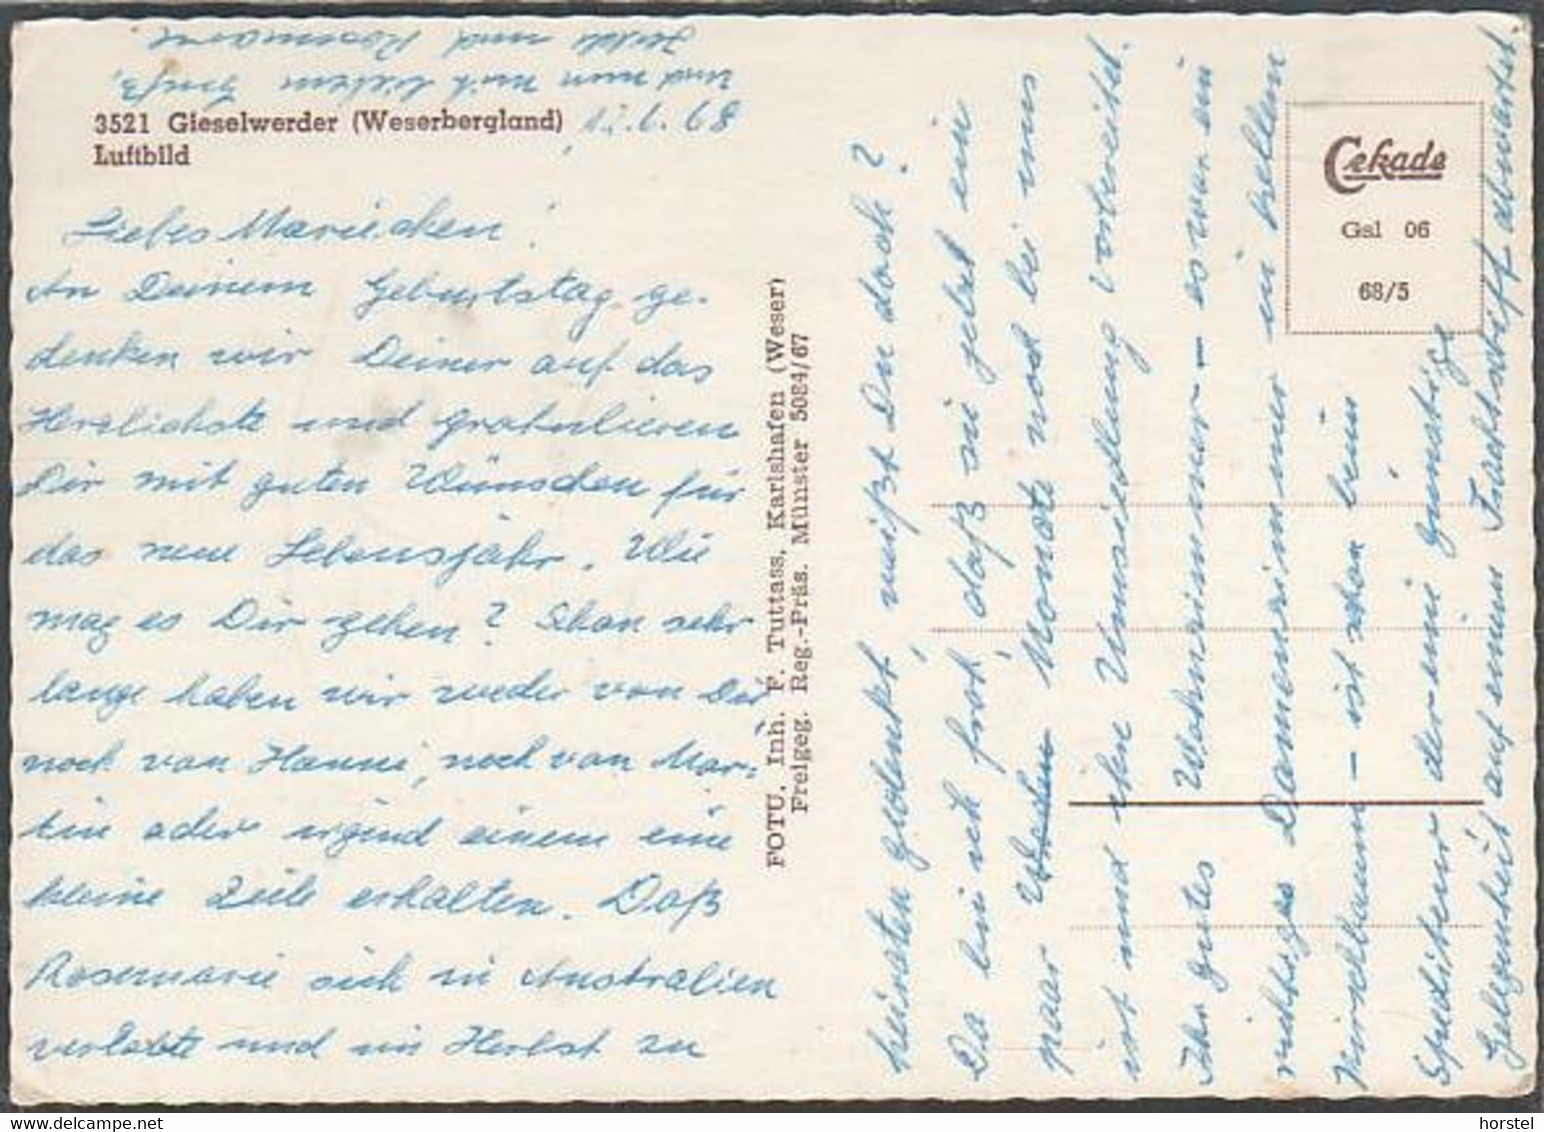 3521 Gieselwerder (Weserbergland)
Luftbild
12.6.68
Liebes Mariechen!
An Deinem Geburtstag ge-
denken wir Deiner auf das
Herzlichste und gratulieren
Dir mit guten Wünschen für
das neue Lebensjahr. Wie
mag es Dir gehen? Schon sehr
lange haben wir weder von Dir
noch von Hanni, noch von Mar-
tin oder irgend einem eine
kleine Zeile erhalten. Daß
Rosemarie sich in Australien
verlobte und im Herbst zu
heiraten gedenkt, weißt Du doch?
Da bin ich froh, daß sie jetzt ein
paar Monate noch bei uns
ist und ihre Umsiedlung vorbereitet.
Ihr gutes Wohnzimmer – es war ein
richtiges Damenzimmer in hellem
Kirschbaum – ist schon beim
Spediteur der eine günstige
Gelegenheit auf einem Frachtschiff abwartet
und nun mit lieben Grüß.
und Rosemarie
FOTU, Inh. F. Tuttass, Karlshafen (Weser)
Freigeg. Reg.-Präs. Münster 5084/67
Cekade
Gsl 06
68/5
horstel